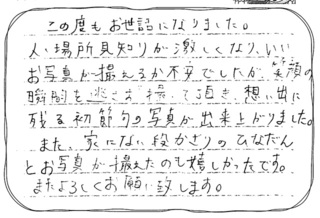 この度もお世話になりました。
人、場所見知りが激しくなり、いい
お写真が撮えるか不安でしたが、笑顔の
瞬間を逃さず撮って頂き、想い出に
残る初節句の写真が出来上がりました。
また、家にない段かざりのひなだん
とお写真が撮えたのも嬉しかったです。
またよろしくお願い致します。